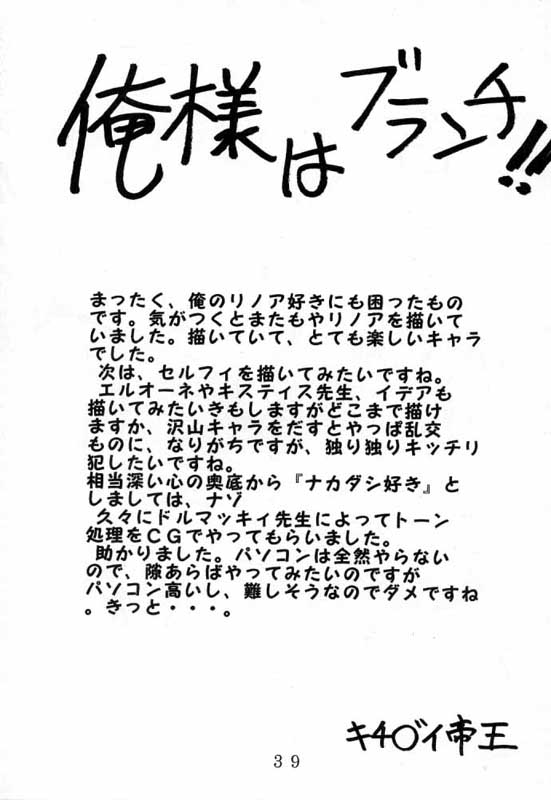 俺様はブランチ!!
まったく、俺のリノア好きにも困ったもの
です。気がつくとまたもやリノアを描いて
いました。描いていて、とても楽しいキャラ
でした。
次は、セルフィを描いてみたいですね。
エルオーネやキスティス先生、イデアも
描いてみたいきもしますがどこまで描け
ますか、沢山キャラをだすとやっぱ乱交
ものに、なりがちですが、独り独りキッチリ
犯したいですね。
相当深い心の奥底から『ナカダシ好き』と
しましては、ナゾ
久々にドルマッキィ先生によってトーン
処理をCGでやってもらいました。
助かりました。パソコンは全然やらない
ので、隙あらばやってみたいのですが
パソコン高いし、難しそうなのでダメですね
。きっと・・・。
キチ○゛イ帝王
39